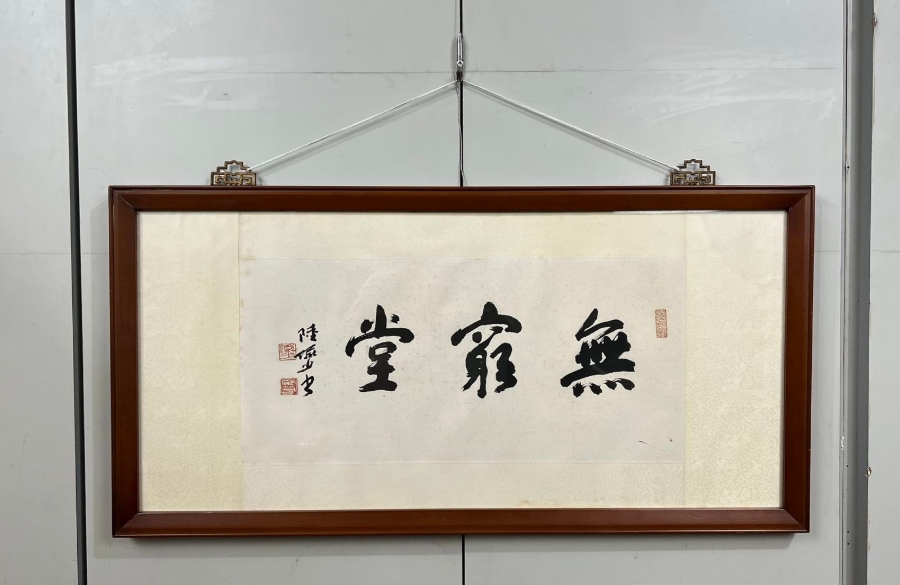 無窮堂
陸儼少書